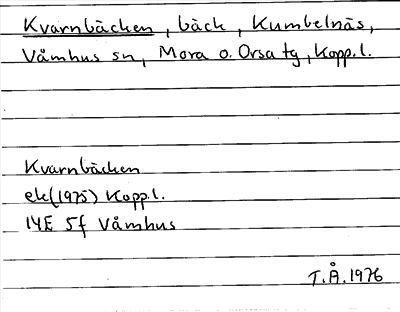 Kvarnbäcken, bäck, Kumbelnäs,
Våmhus sn, Mora o. Orsa tg, Kopp.l.
Kvarnbäcken
ek(1975) Kopp.l.
14E 5f Våmhus
T.Å.1976